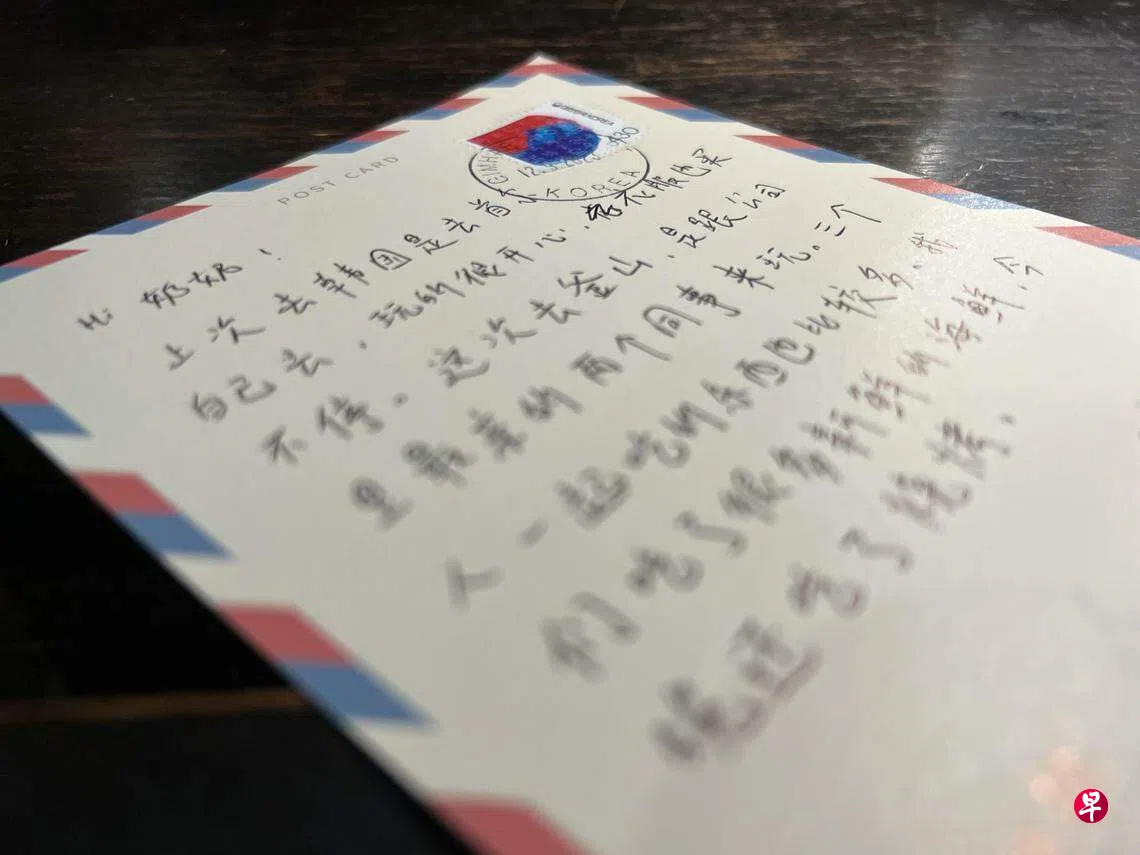 POST CARD
KOREA
430
KOREA
Hi 奶奶！
上次去韩国是去首尔
自己去，玩的很开心，衣服也买
不停。这次去釜山，是跟公司
里最亲的两个同事来玩。三个
人一起吃的东西也比较多。我
们吃了很多新鲜的海鲜，今
晚还吃了烧烤。
早